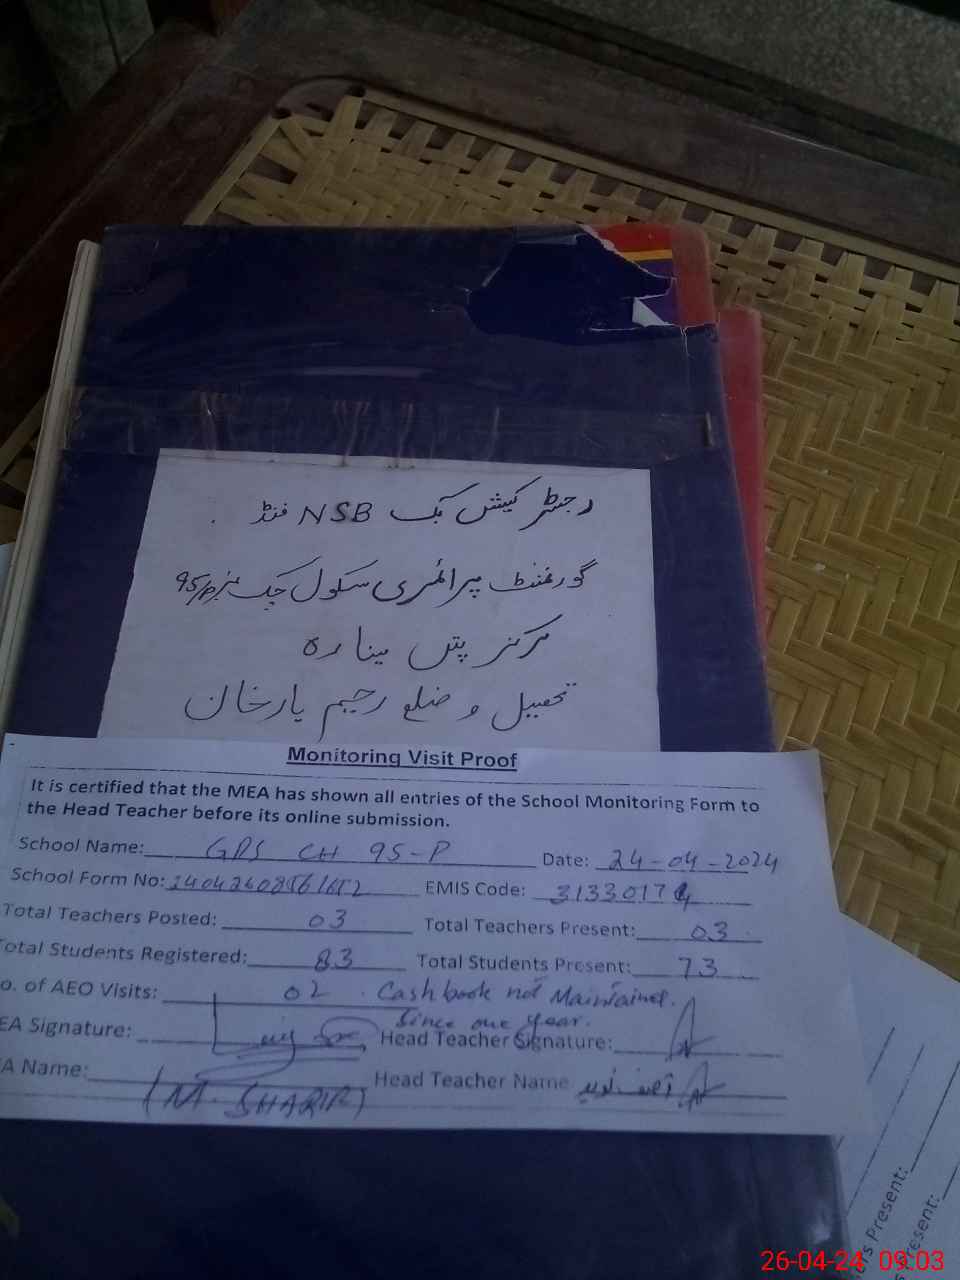 رجسٹر کیش بک NSB فنڈ
گورنمنٹ پرائمری سکول چک نمبر 95/P
مرکز پتن مینارہ
تحصیل و ضلع رحیم یار خان
Monitoring Visit Proof
It is certified that the MEA has shown all entries of the School Monitoring Form to
the Head Teacher before its online submission.
School Name: GPS CH 95-P Date: 24-04-2024
School Form No: EMIS Code:
Total Teachers Posted: 03 Total Teachers Present: 03
Total Students Registered: 83 Total Students Present: 73
o. of AEO Visits: 02 . Cash book not Maintained.
Since one year.
EA Signature: Head Teacher Signature:
A Name: Head Teacher Name
(M. SHABIR)
ers Present:
s Present:
26-04-24 09:03